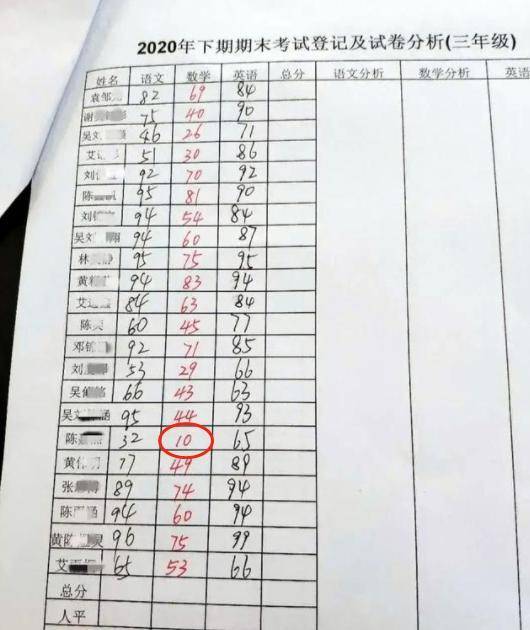 2020年下期期末考试登记及试卷分析(三年级)
姓名 语文 数学 英语 总分 语文分析 数学分析 英语
袁邹 82 69 84
谢 75 40 90
吴刘 46 26 71
艾 51 30 86
刘 92 70 92
陈 95 81 90
刘 94 54 84
吴刘 94 60 87
林 95 75 95
黄 94 83 94
艾 84 63 84
陈 60 45 77
邓 92 71 85
刘 53 29 66
吴 66 43 63
吴刘 涵 95 44 93
陈 32 10 65
黄 77 49 89
张 89 74 94
陈 涵 94 60 94
黄陈 灵 96 75 99
艾 65 53 66
总分
人平